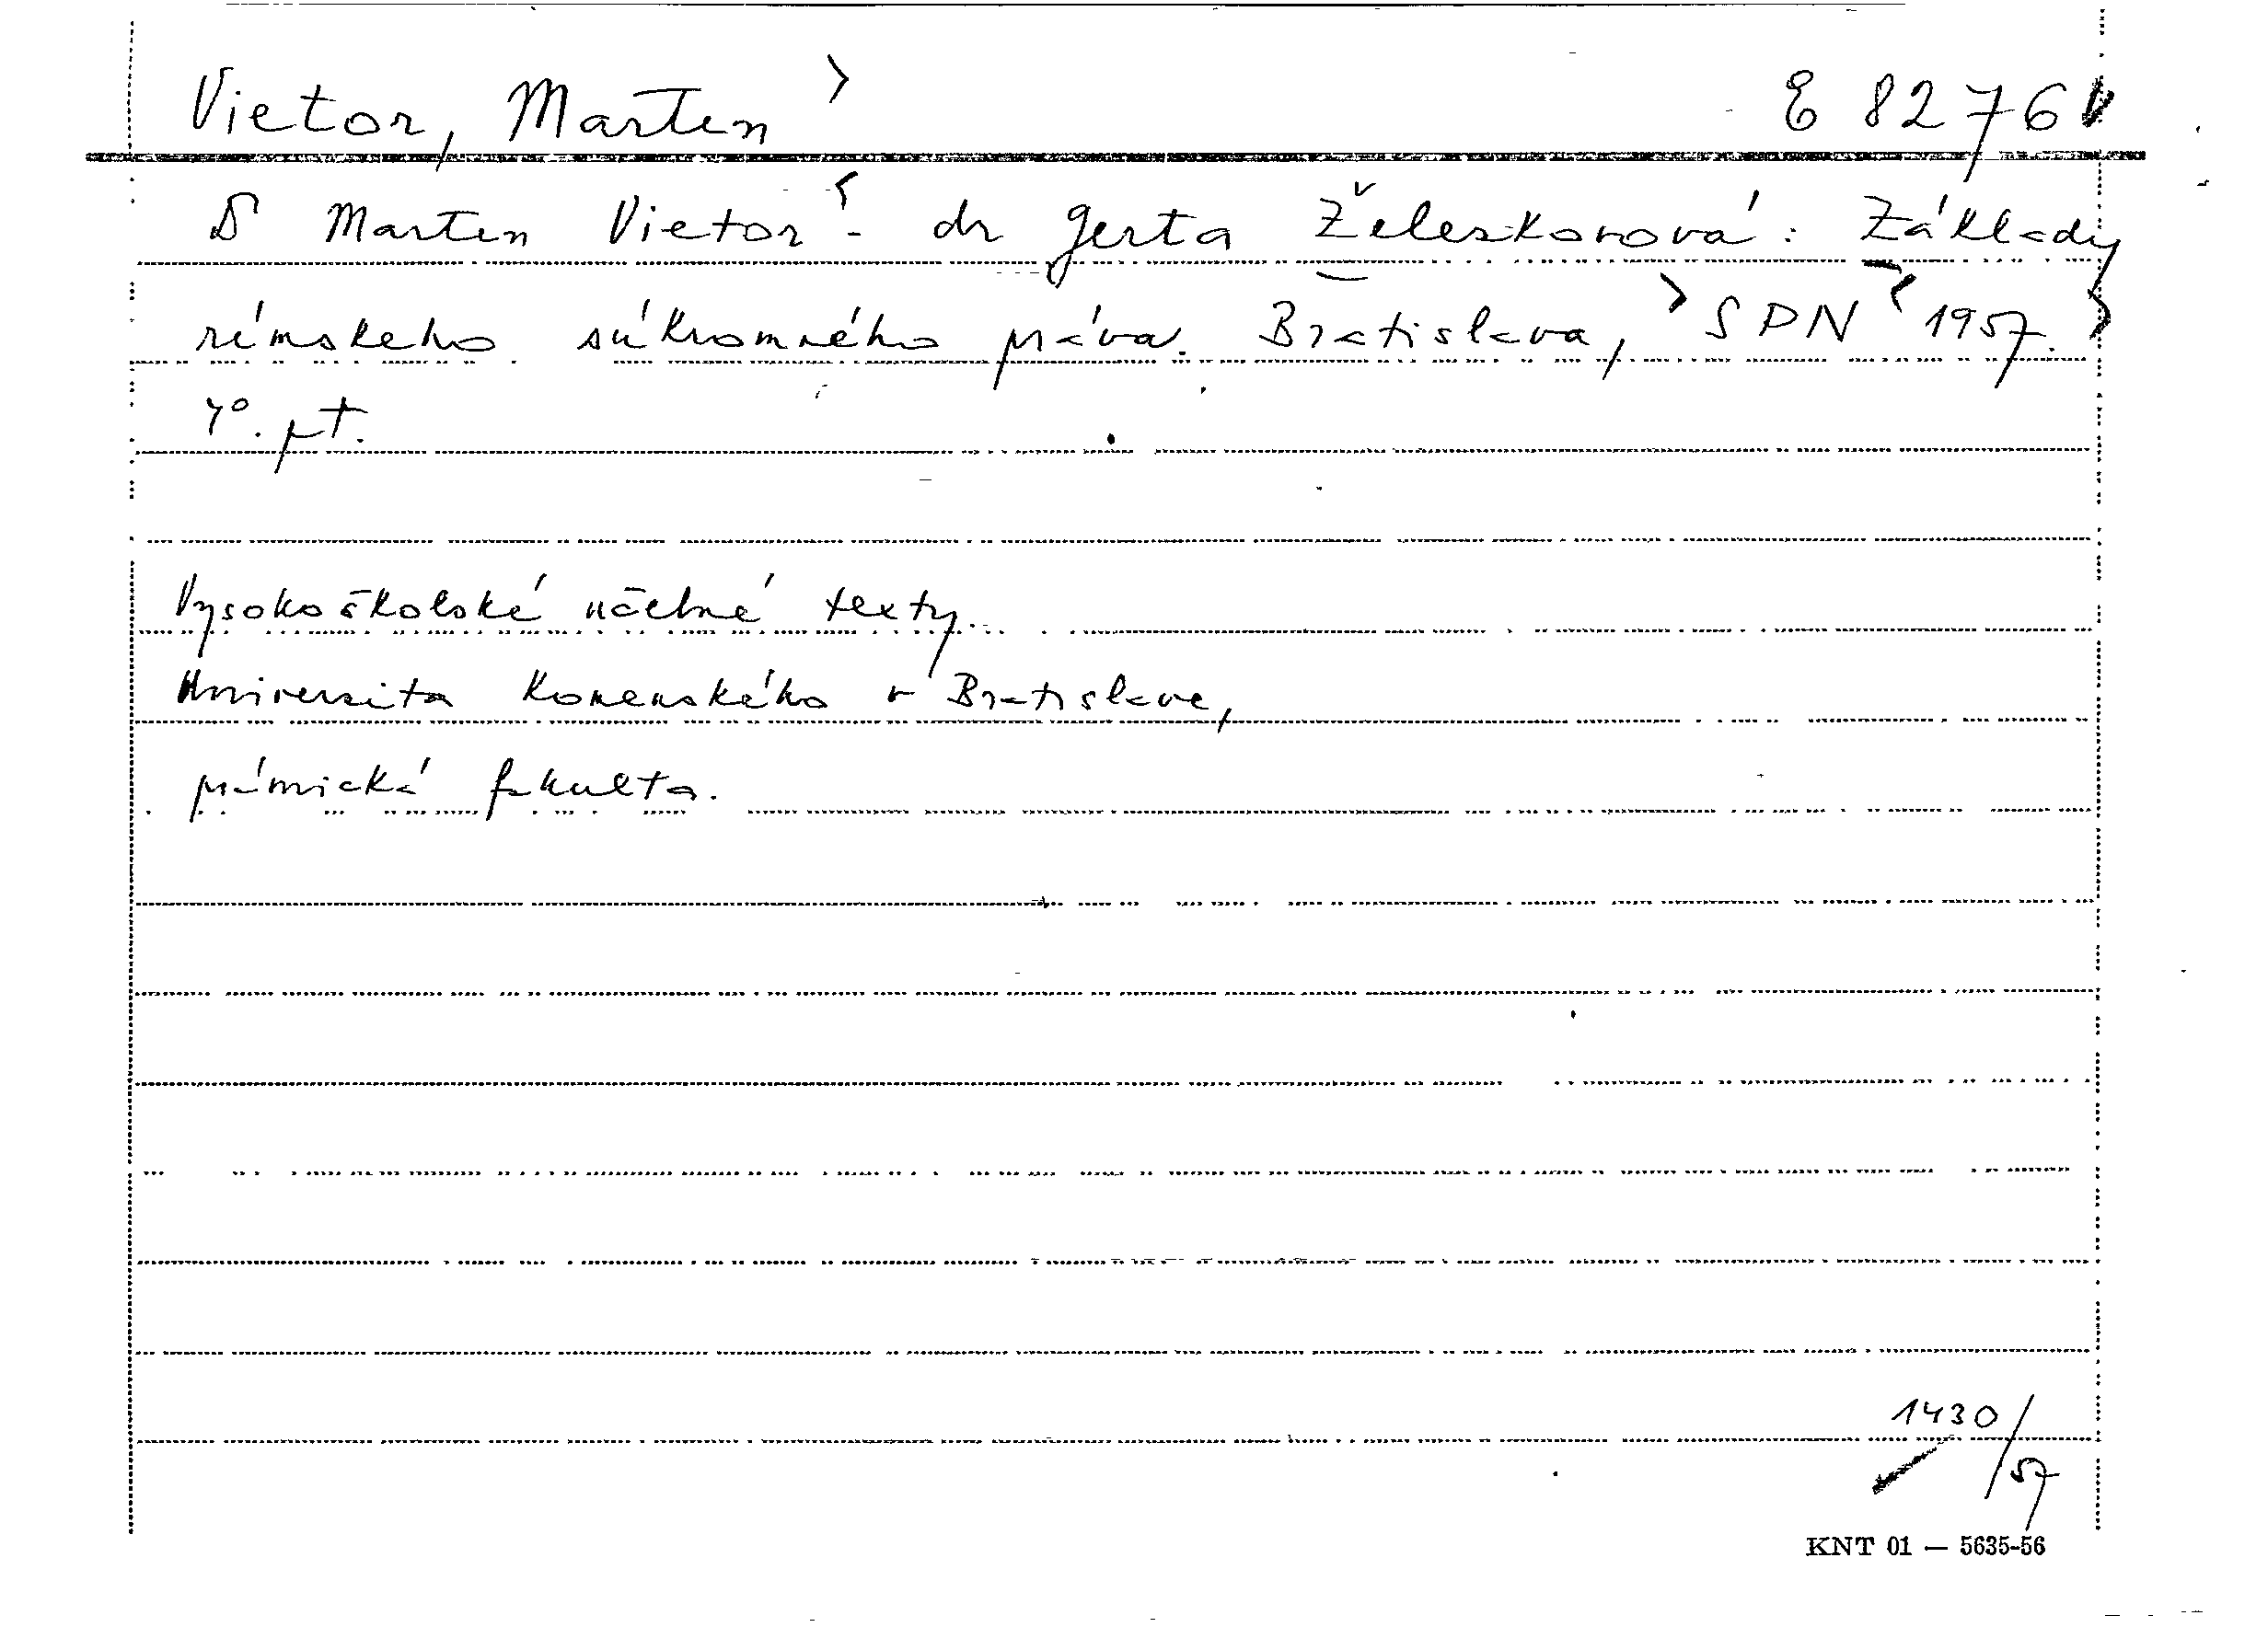 Vietor, Martin E 82761
Dr Martin Vietor - dr Gerta Železkovová: Základy
rímskeho súkromného práva. Bratislava, SPN 1957.
4°. pt.
Vysokoškolské učebné texty.
Universita Komenského v Bratislave,
právnická fakulta.
1430/57
KNT 01 — 5635-56